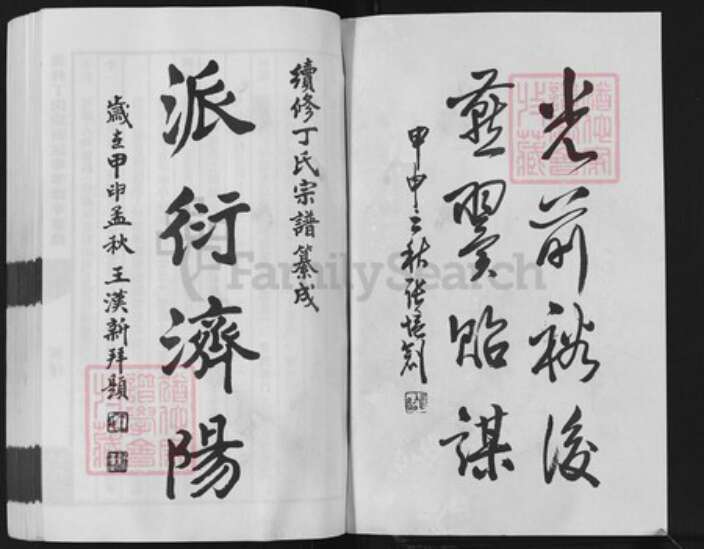 光前裕後
燕翼貽謀
甲申三秋張培剑
續修丁氏宗譜纂成
派衍濟陽
歲在甲申孟秋王漢新拜題
FamilySearch